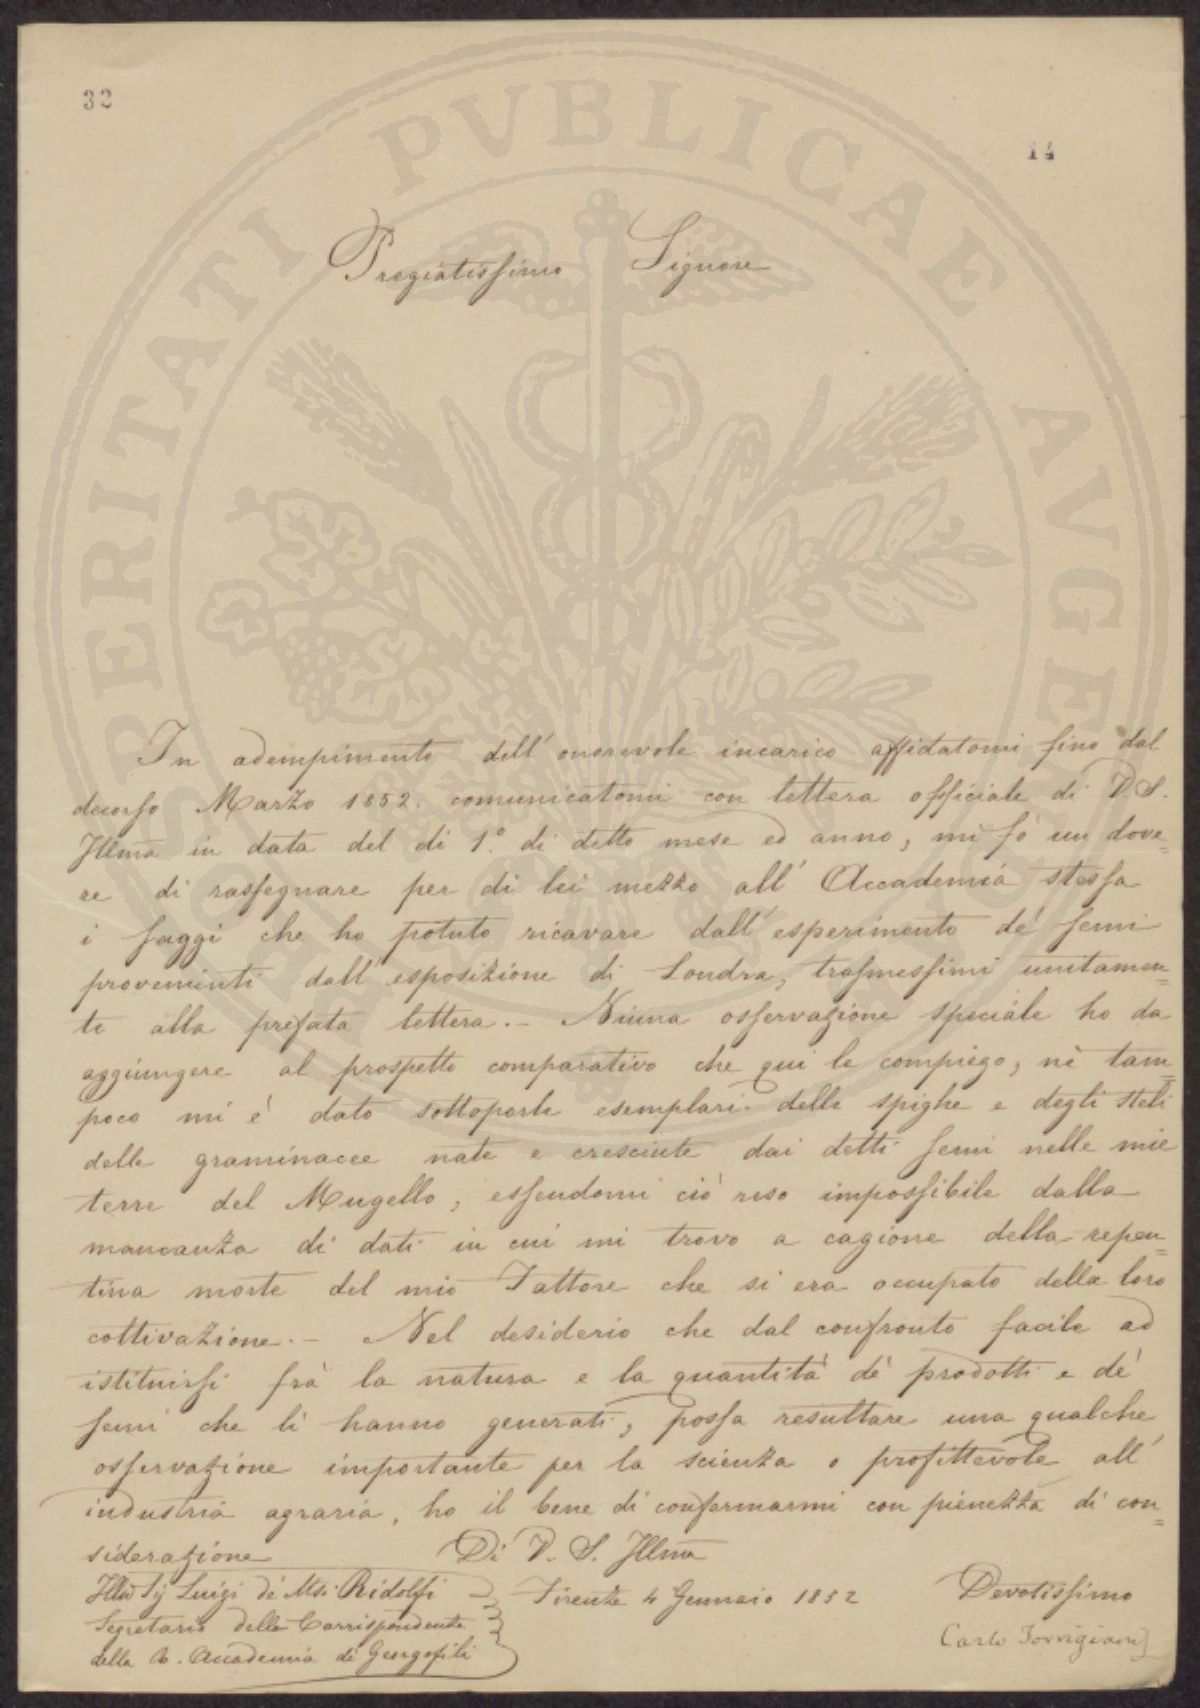 32
14
PROSPERITATI PVBLICAE AVGENDAE
Pregiatissimo Signore
In adempimento dell'onorevole incarico affidatomi fino dal
decorso Marzo 1852. comunicatomi con lettera officiale di V.S.
Illma in data del di 1.° di detto mese ed anno, mi fò un dove=
re di rassegnare per di lei mezzo all'Accademia stessa
i saggi che ho potuto ricavare dall'esperimento de' semi
provenienti dall'esposizione di Londra, trasmessimi unitamen=
te alla prefata lettera. — Niuna osservazione speciale ho da
aggiungere al prospetto comparativo che qui le compiego, nè tam=
poco mi è dato sottoporle esemplari delle spighe e degli steli
delle graminacee nate e cresciute dai detti semi nelle mie
terre del Mugello, essendomi ciò reso impossibile dalla
mancanza di dati in cui mi trovo a cagione della repen=
tina morte del mio Fattore che si era occupato della loro
coltivazione. — Nel desiderio che dal confronto facile ad
istituirsi frà la natura e la quantità de' prodotti e de'
semi che li hanno generati, possa resultare una qualche
osservazione importante per la scienza o profittevole all'
industria agraria, ho il bene di confermarmi con pienezza di con=
siderazione
Di V. S. Illma
Illmo Sig Luigi de' Msi Ridolfi
Segretario delle Corrispondenze
della R. Accademia di Georgofili
Firenze 4 Gennaio 1852
Devotissimo
Carlo Torrigiani